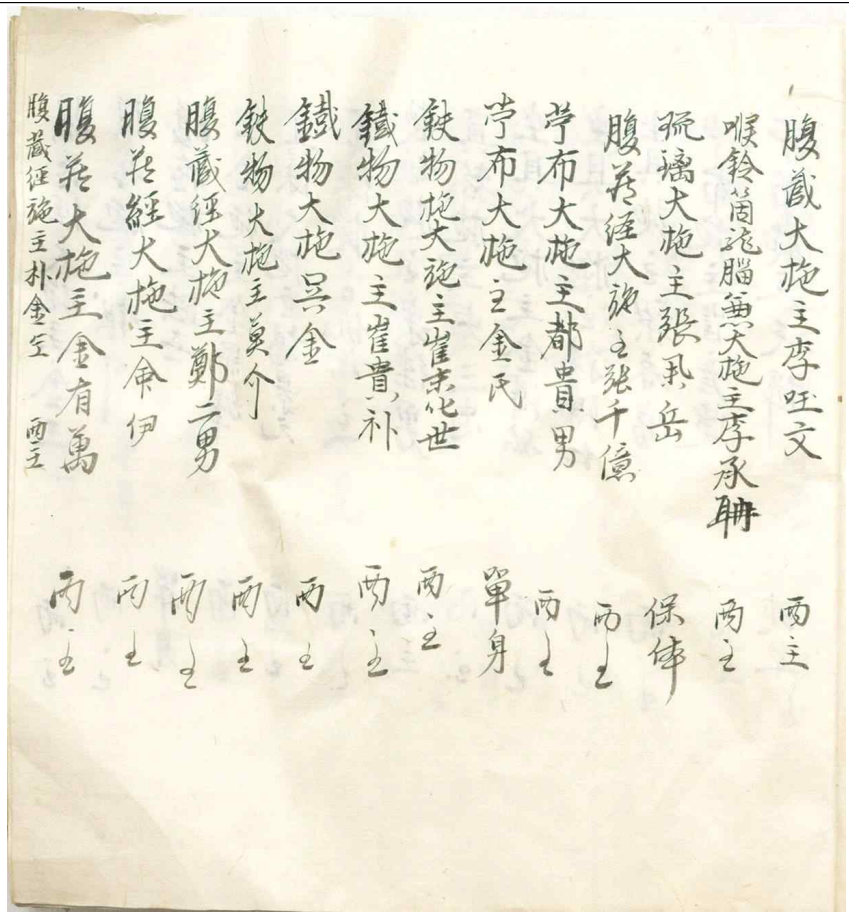 腹藏大施主李旺文 両主
喉鈴筒龍腦兼大施主李承 両主
琉璃大施主張 岳 保体
腹藏経大施主張千億 両主
苧布大施主都貴男 両主
苧布大施主金氏 單身
鉄物大施主崔末世 両主
鐵物大施主崔貴 両主
鐵物大施吳金 両主
鉄物大施主莫介 両主
腹藏経大施主鄭二男 両主
腹藏經大施主 伊 両主
腹藏大施主金有萬 両主
腹藏経施主朴金 両主